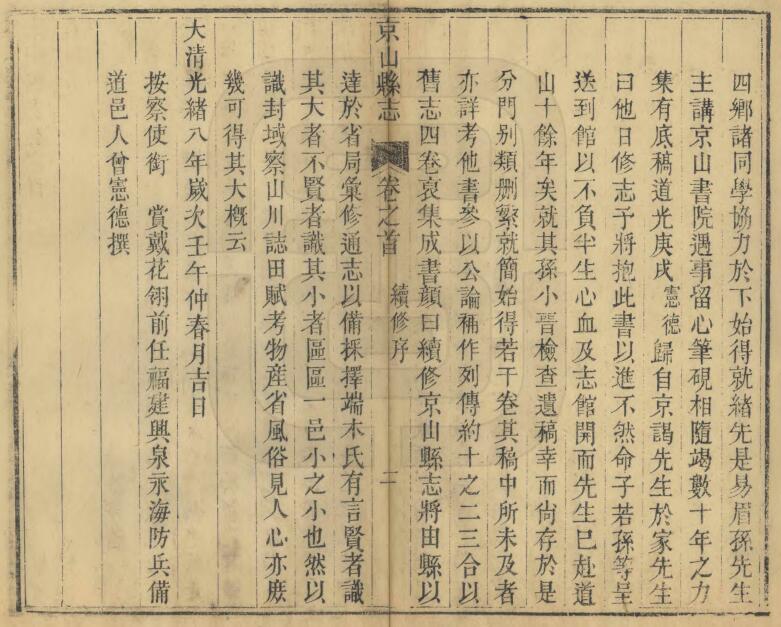 四鄉諸同學協力於下始得就緒先是易眉孫先生
主講京山書院遇事留心筆硯相隨竭數十年之力
集有底稿道光庚戌憲德歸自京謁先生於家先生
曰他日修志予將抱此書以進不然命子若孫等呈
送到館以不負半生心血及志館開而先生已赴道
山十餘年矣就其孫小晉檢查遺稿幸而尙存於是
分門別類删繁就簡始得若干卷其稿中所未及者
亦詳考他書參以公論稱作列傳約十之二三合以
舊志四卷裒集成書顔曰續修京山縣志將由縣以
京山縣志 卷之首 續修序 二
達於省局彙修通志以備採擇端木氏有言賢者識
其大者不賢者識其小者區區一邑小之小也然以
識封域察山川誌田賦考物産省風俗見人心亦庶
幾可得其大槪云
大清光緒八年歲次壬午仲春月吉日
按察使銜 賞戴花翎前任福建興泉永海防兵備
道邑人曾憲德撰